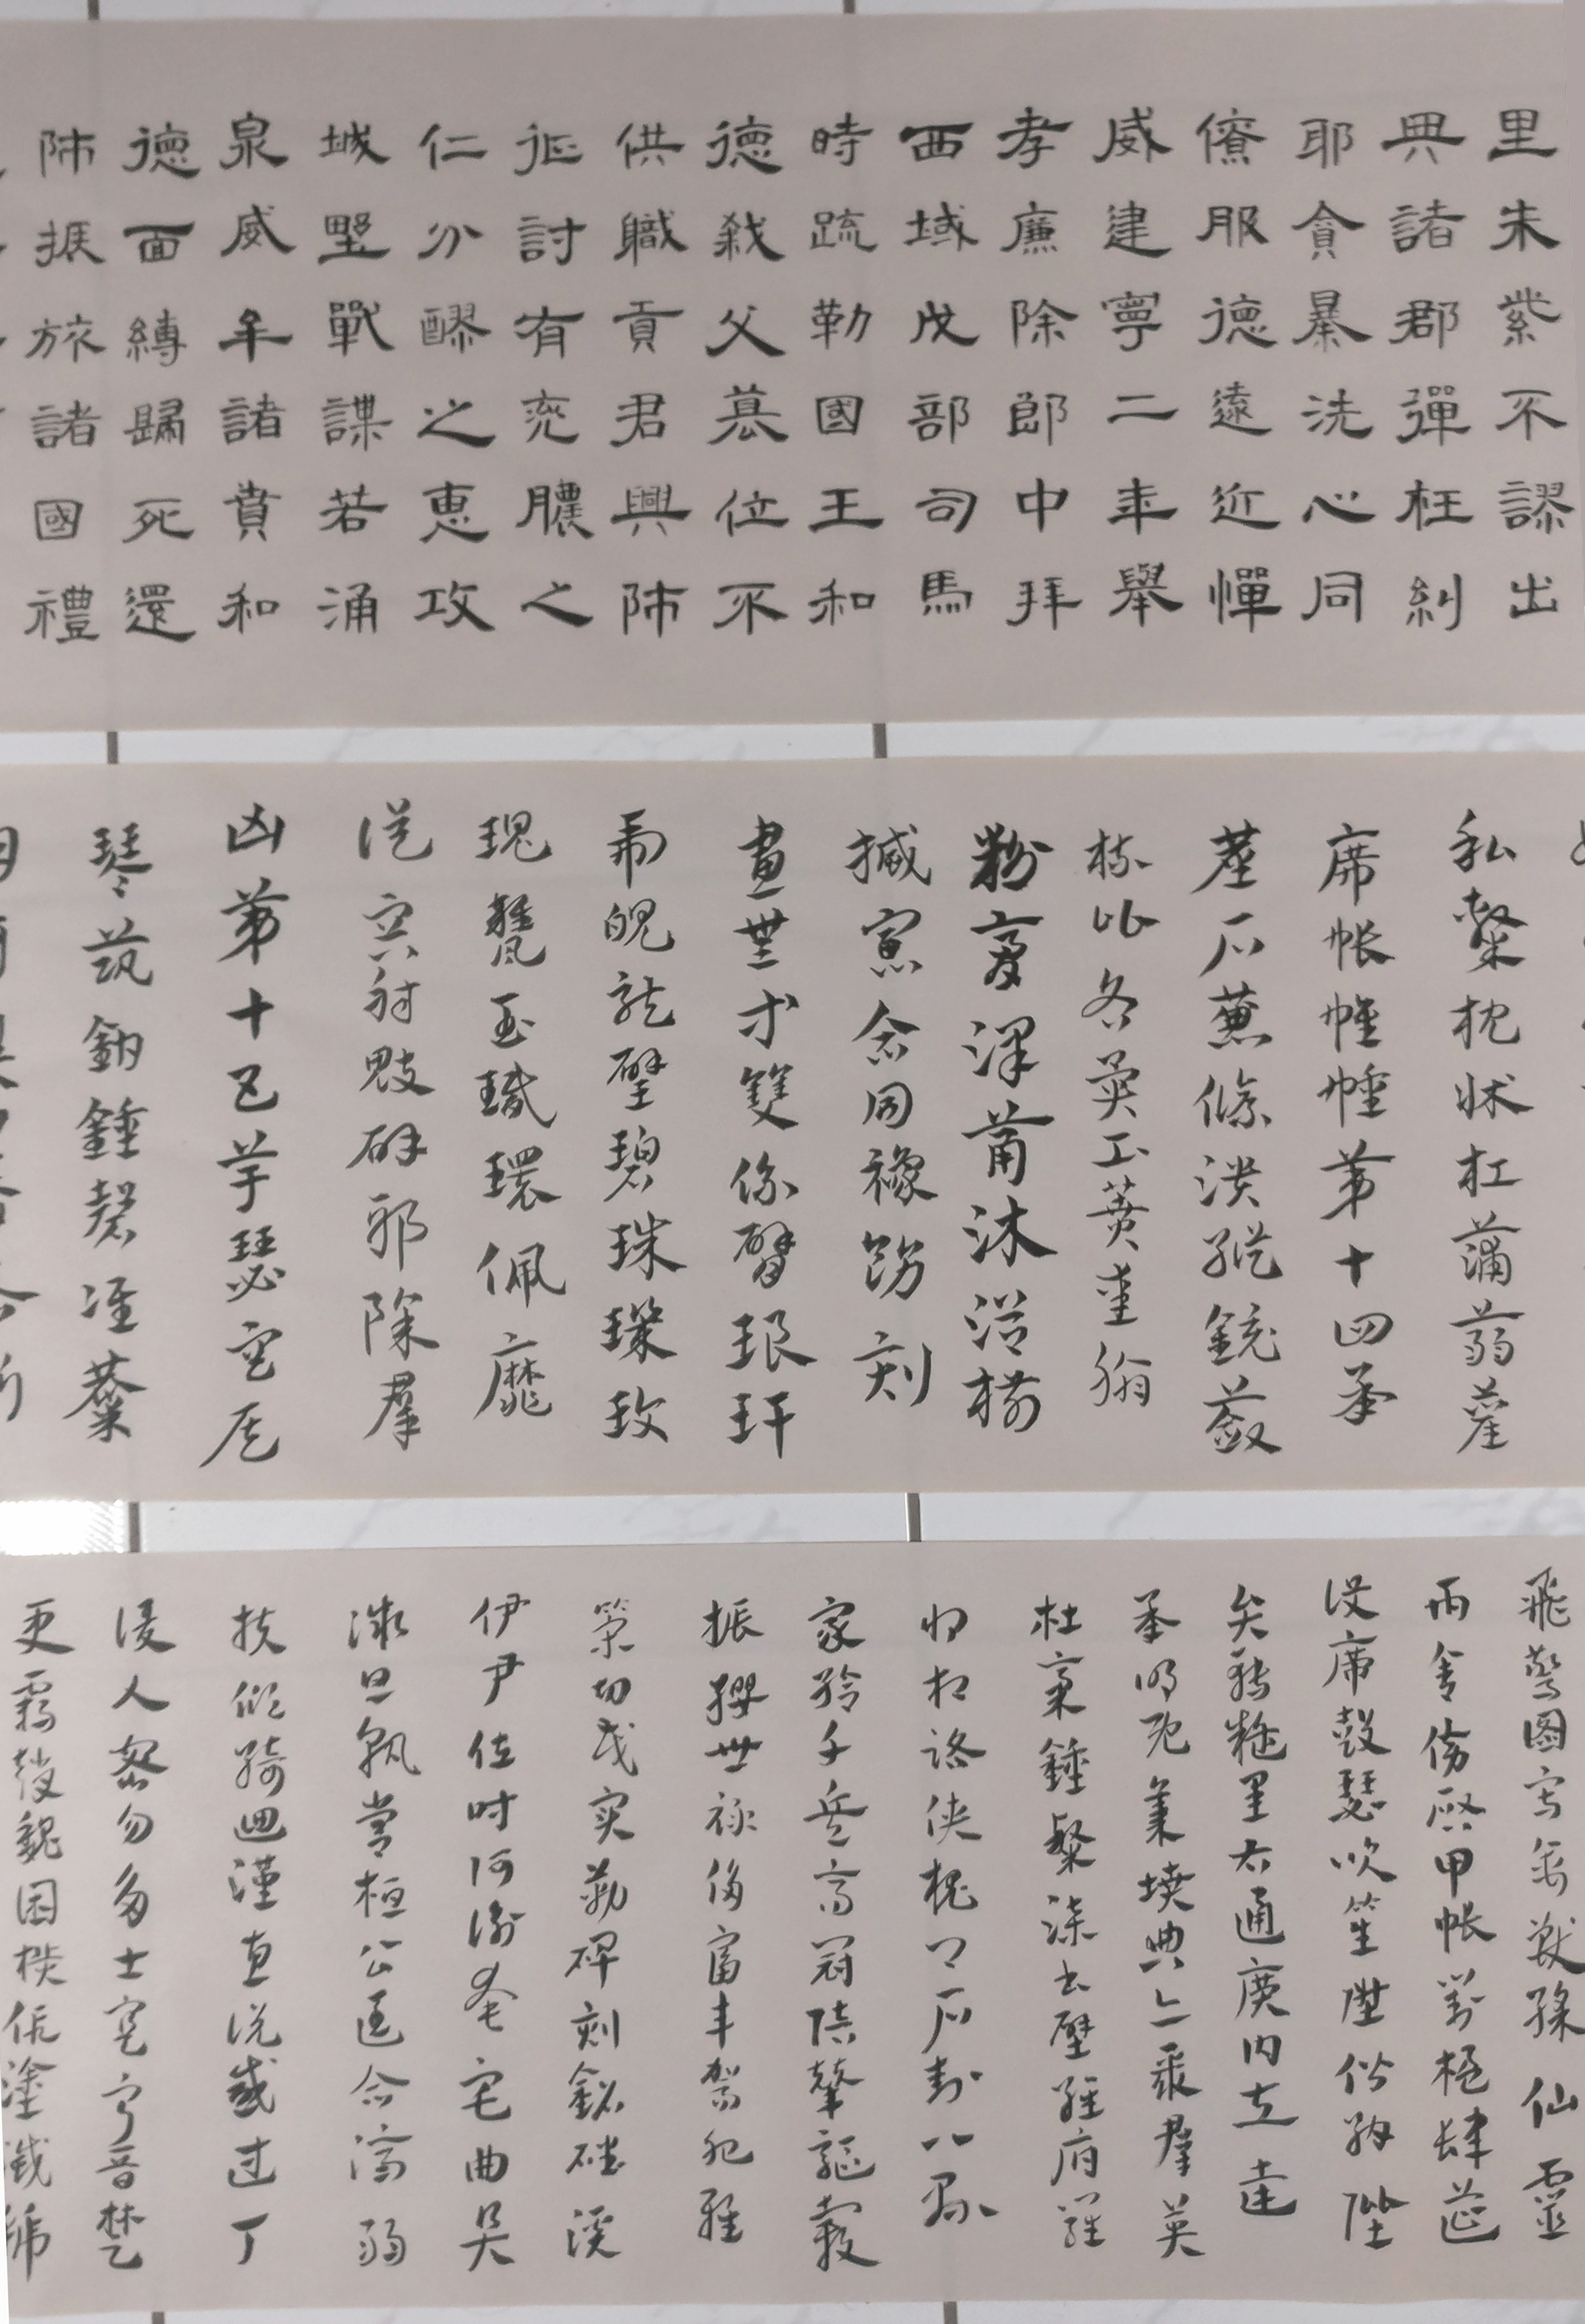 里朱紫不謬出
典諸郡彈枉糾
耶貪暴洗心同
僚服德遠近憚
威建寧二年舉
孝廉除郎中拜
西域戊部司馬
時疏勒國王和
德弒父篡位不
供職貢君興師
征討有兗膿之
仁分醪之惠攻
城野戰謀若涌
泉威牟諸賁和
德面縛歸死還
師振旅諸國禮
私枕狀杠蒲蒻藺
席帳帷幢第十四承
塵戶絛潰縱鏡
梳比各異工蕡熏脂
粉膏澤筩沐浴揃
搣寡合同襐飭刻
畫無等雙係臂琅玕
虎魄龍璧碧珠璣玫
瑰甕玉玦環佩靡
從容射魃辟邪除群
凶第十五竽瑟空侯
琴筑鍾磬
飛驚圖寫禽獸綵仙靈
丙舍傍啟甲帳對楹肆筵
設席鼓瑟吹笙陞階納陛
轉疑星右通廣內左達
承明既集墳典亦聚群英
杜稾鍾隸漆書壁經府羅
將相路俠槐卿戶封八縣
家給千兵高冠陪輦驅轂
振纓世祿侈富車駕肥輕
策功茂實勒碑刻銘磻溪
伊尹佐時阿衡奄宅曲阜
微旦孰營桓公匡合濟弱
扶傾綺迴漢惠說感武丁
俊乂密勿多士寔寧晉楚
更霸趙魏困橫假途滅虢